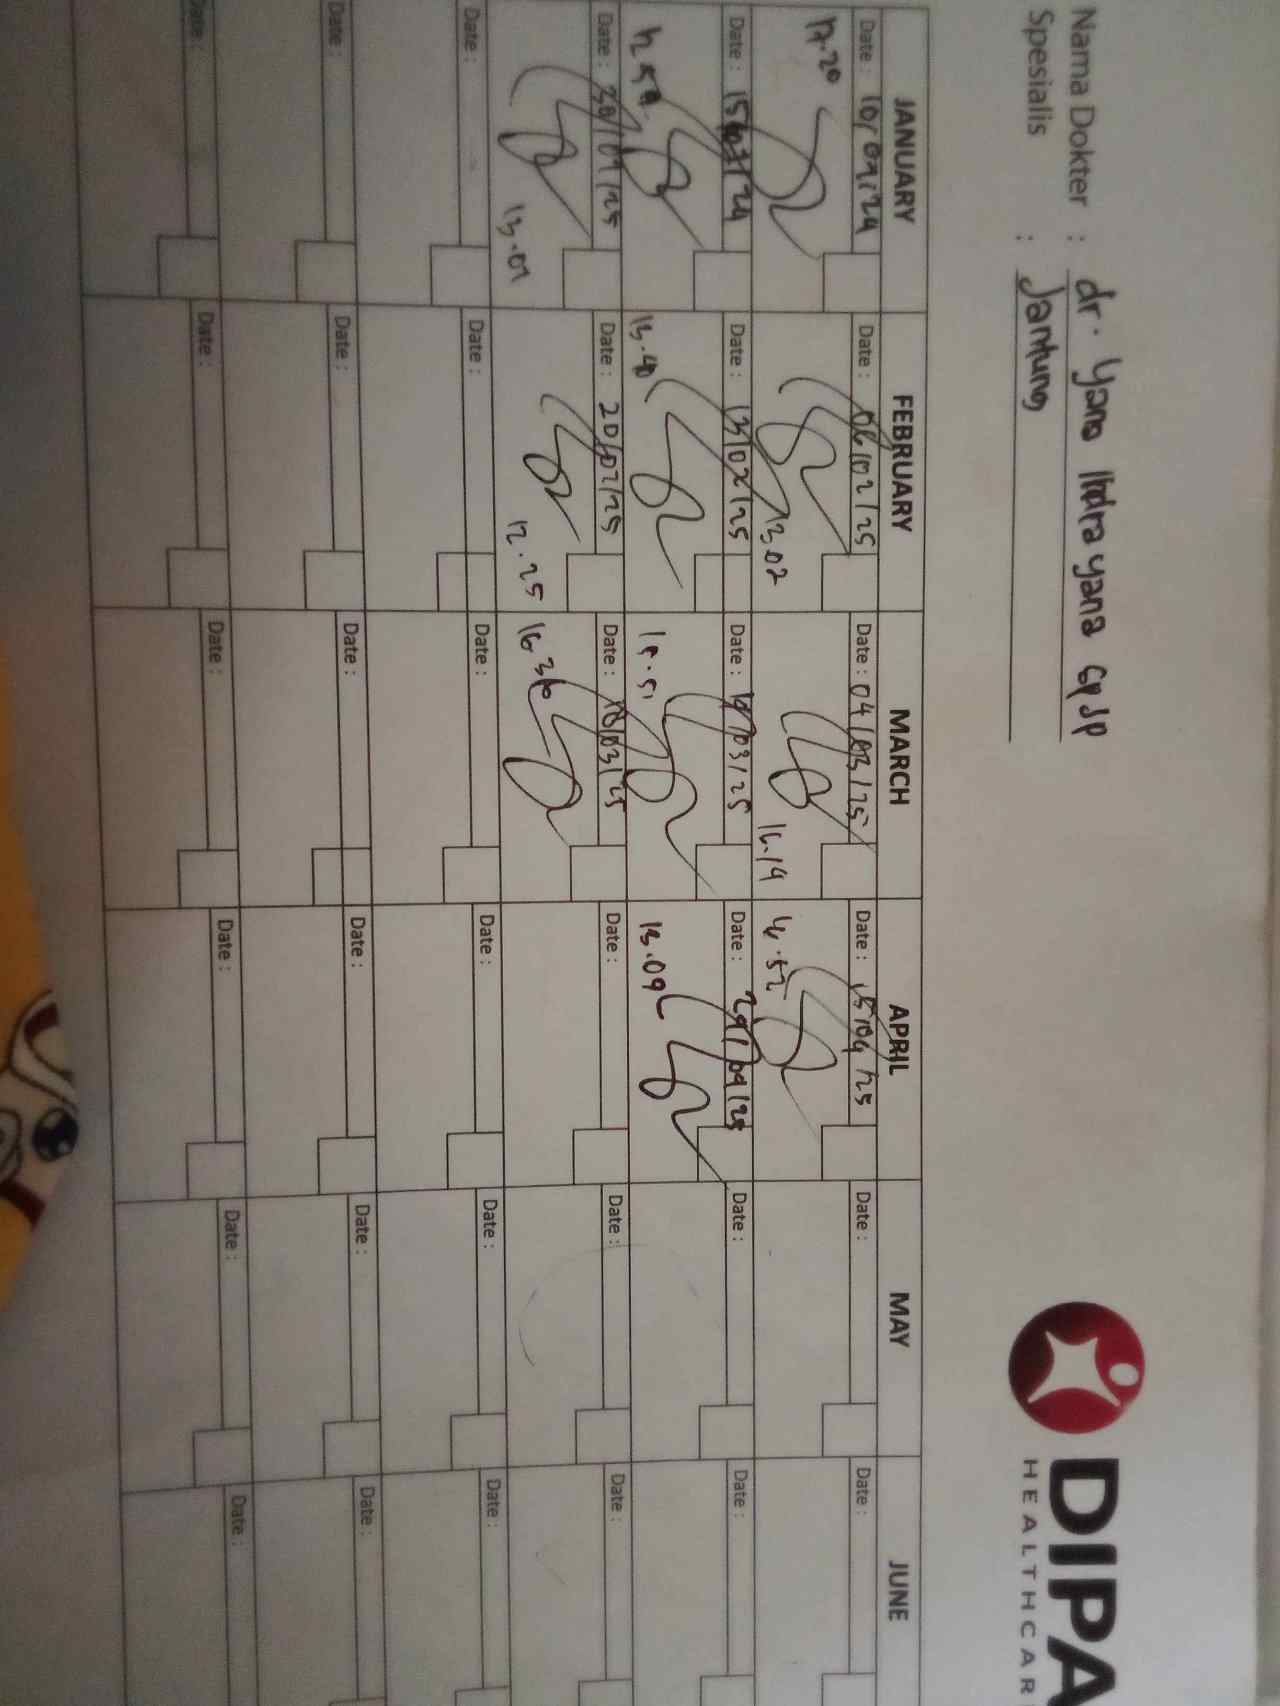 Nama Dokter : dr. Yano Indrayana SpJP
Spesialis : Jantung
DIPA
HEALTHCAR
JANUARY FEBRUARY MARCH APRIL MAY JUNE
Date : 10/01/24 Date : 06/02/25 Date : 04/03/25 Date : 15/04/25 Date : Date :
17.20 13.02 16.19 14.52
Date : 15/01/24 Date : 13/02/25 Date : 10/03/25 Date : 29/04/25 Date : Date :
12.59 13.40 15.51 13.09
Date : 30/01/25 Date : 20/02/25 Date : 18/03/25 Date : Date : Date :
13.01 12.25 16.36
Date : Date : Date : Date : Date : Date :
Date : Date : Date : Date : Date : Date :
Date : Date : Date : Date : Date : Date :